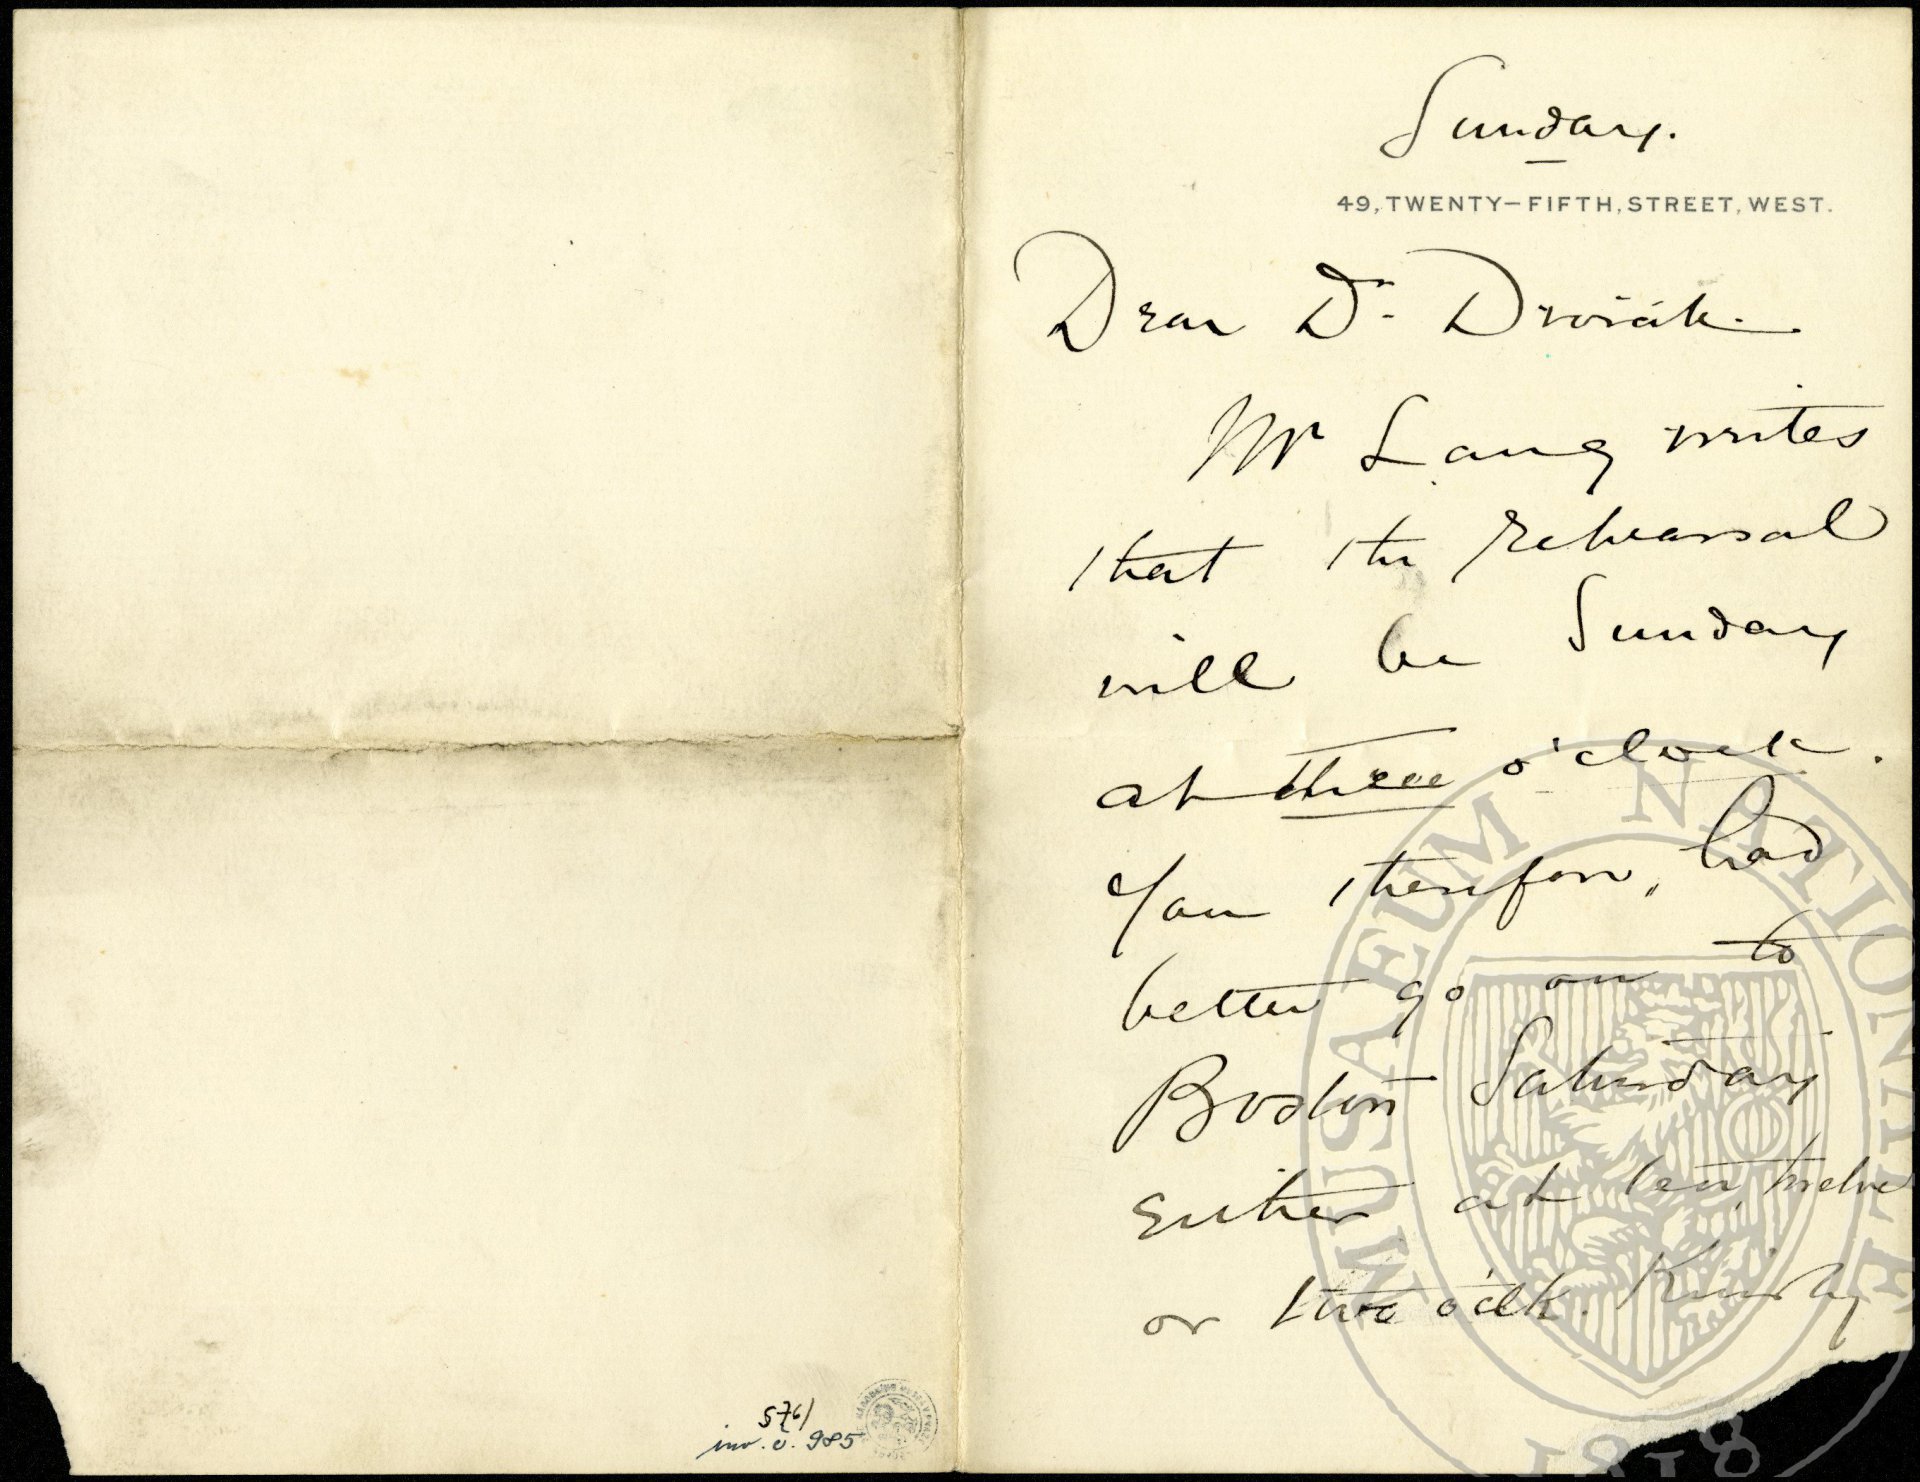 Sunday.
49, TWENTY-FIFTH, STREET, WEST.
Dear Dr. Dvořák.
Mr Lang writes
that the rehearsal
will be Sunday
at three o'clock.
You therefore, had
better go on to
Boston Saturday
either at ten, twelve
or two o'clk. Kindly
inv. č. 985
MUSAEUM NATIONALE
1818